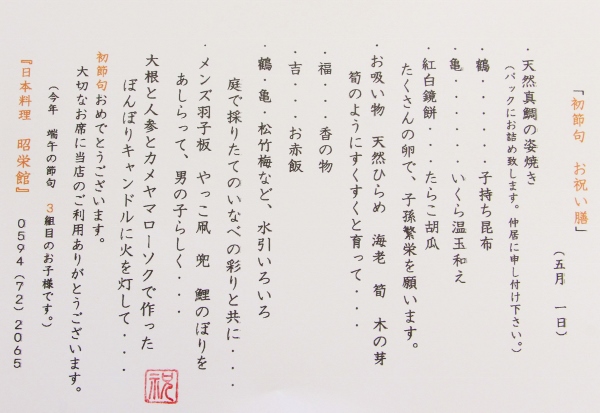 「初節句　お祝い膳」
（五月　一日）
・天然真鯛の姿焼き
（パックにお詰め致します。仲居に申し付け下さい。）
・鶴・・・・・・子持ち昆布
・亀・・・・・・いくら温玉和え
・紅白鏡餅・・・・たらこ胡瓜
たくさんの卵で、子孫繁栄を願います。
・お吸い物　天然ひらめ　海老　筍　木の芽
筍のようにすくすくと育って・・・・
・福・・・香の物
・吉・・・お赤飯
・鶴・亀・松竹梅など、水引いろいろ
庭で採りたてのいなべの彩りと共に・・・・
・メンズ羽子板　やっこ凧　兜　鯉のぼりを
あしらって、男の子らしく・・・
大根と人参とカメヤマローソクで作った
ぼんぼりキャンドルに火を灯して・・・
祝
初節句おめでとうございます。
大切なお席に当店のご利用ありがとうございます。
（今年　端午の節句　3組目のお子様です。）
『日本料理　昭栄館』　0594（72）2065